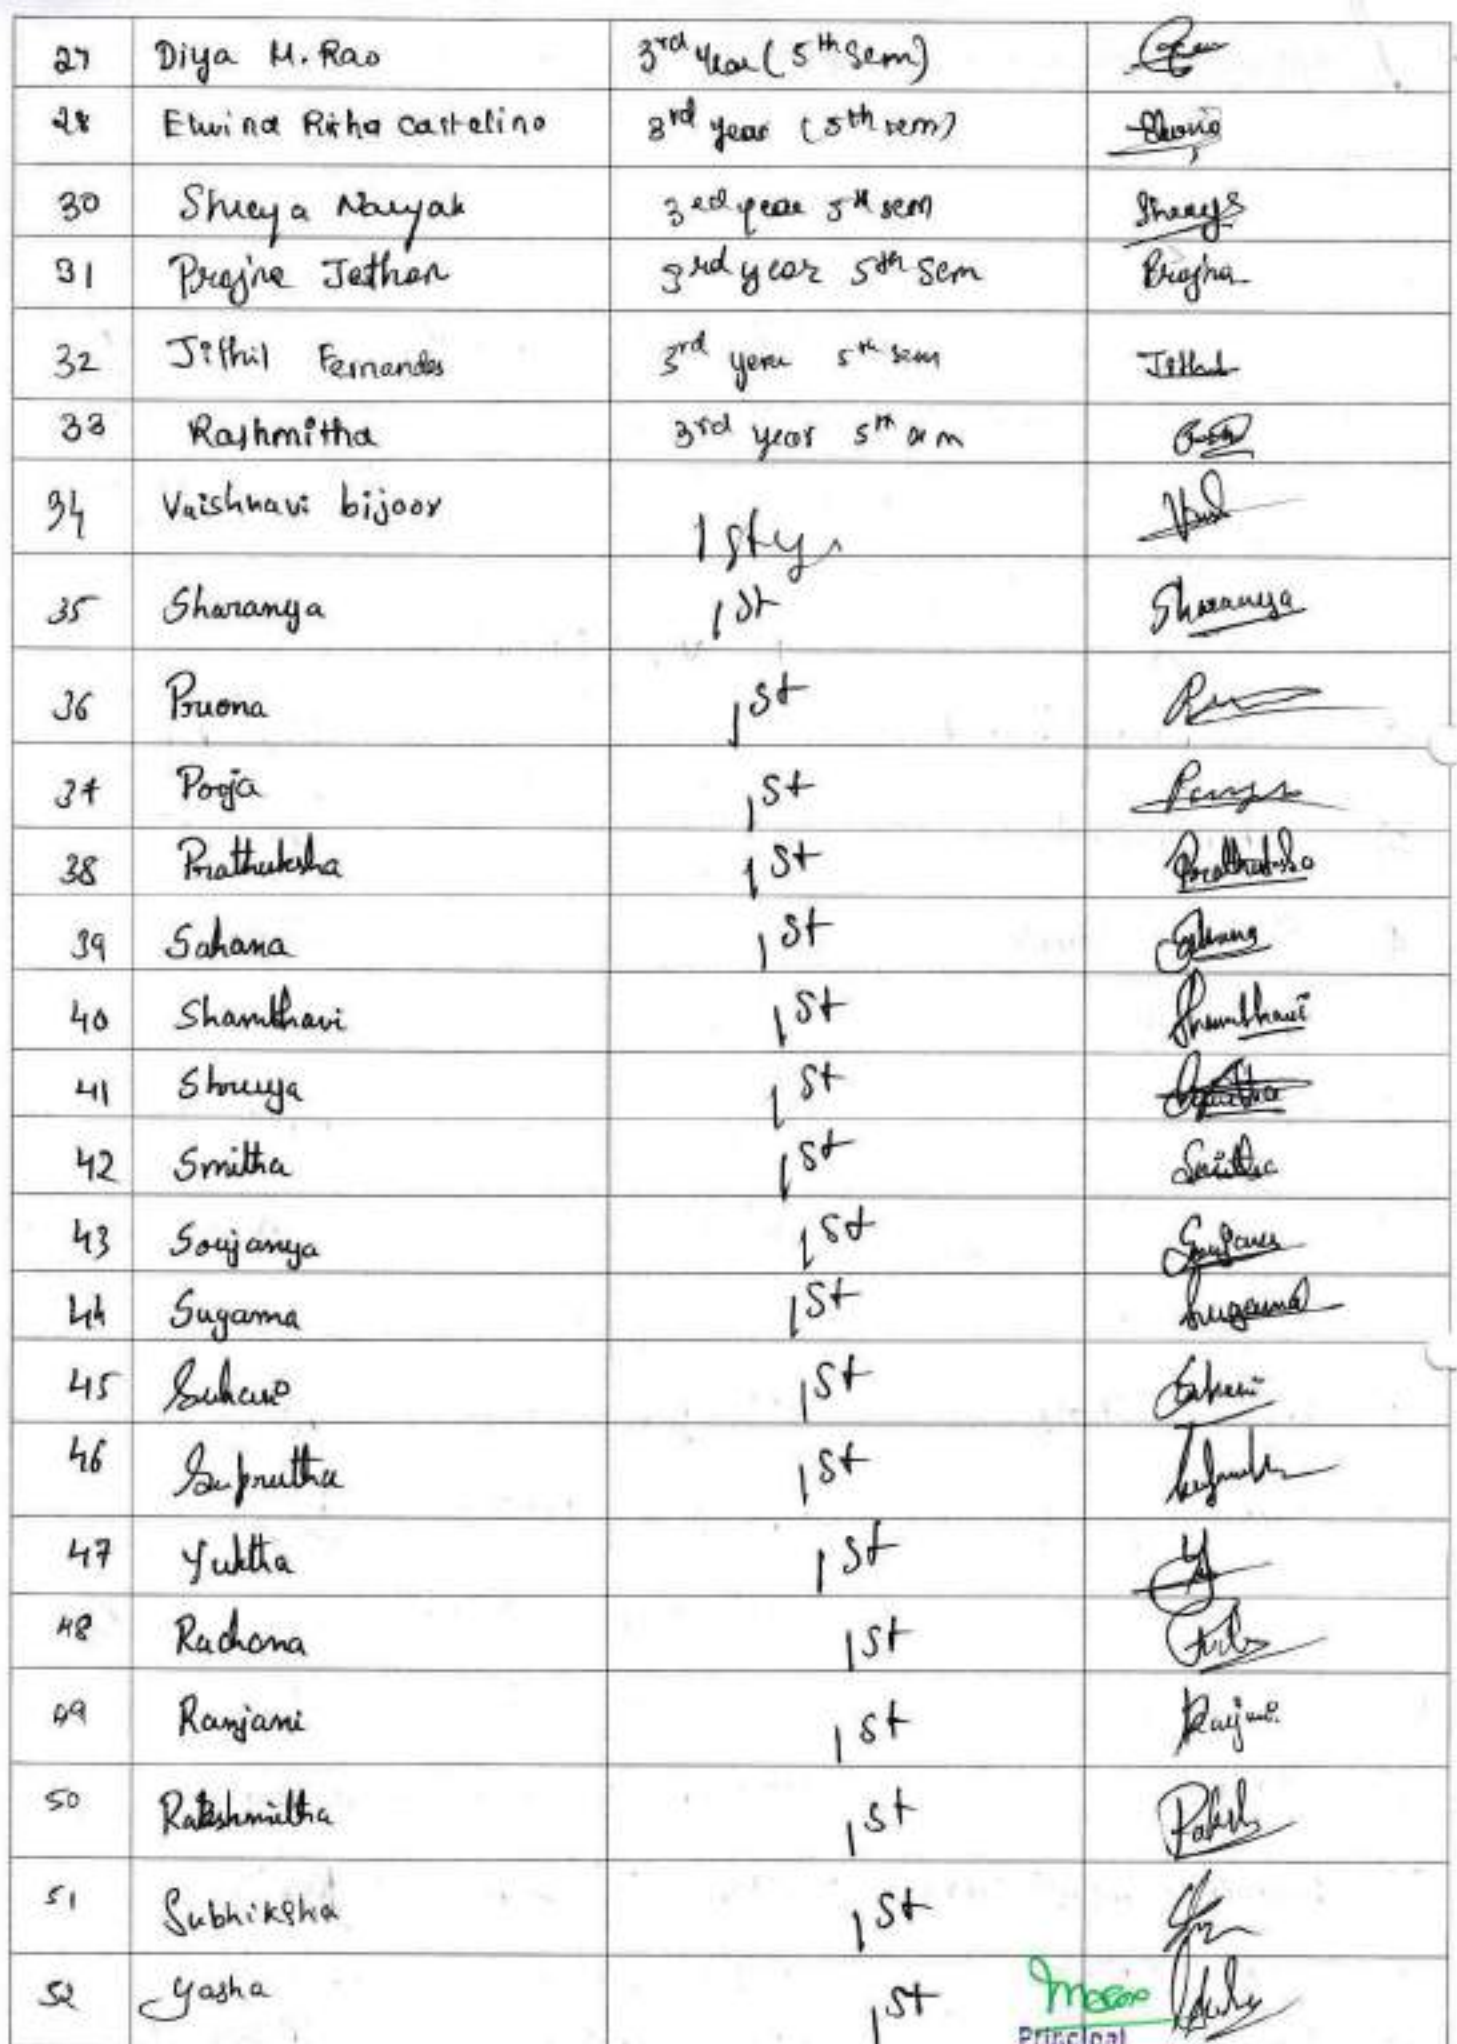 27 Diya M. Rao 3rd year (5th Sem)
28 Elwina Risha Castelino 3rd year (5th sem)
30 Shreya Nayak 3rd year 5th sem Shreya
31 Prajna Jathan 3rd year 5th Sem Prajna
32 Jithil Fernandes 3rd year 5th sem
33 Rashmitha 3rd year 5th sem
34 Vaishnavi bijoor 1st yr
35 Sharanya 1st Sharanya
36 1st
37 Pooja 1st
38 Prathuksha 1st
39 Sahana 1st Sahana
40 Shambhavi 1st Shambhavi
41 Shreya 1st
42 Smitha 1st Smitha
43 Soujanya 1st
44 Sugama 1st Sugama
45 Suhani 1st Suhani
46 Suprutha 1st
47 Yuktha 1st
48 Rachana 1st
49 Ranjani 1st
50 Rakshmitha 1st
51 Subhiksha 1st
52 Yasha 1st
Principal